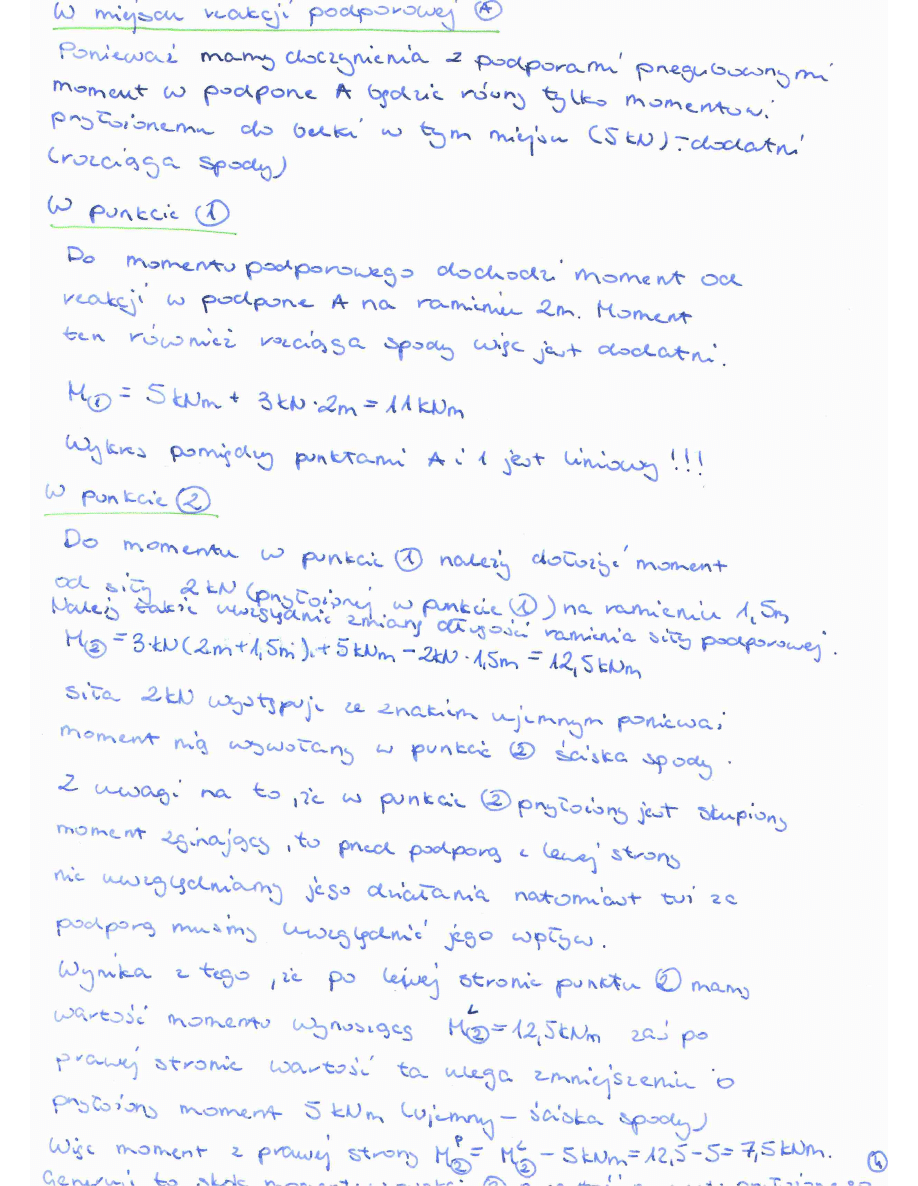 W miejscu reakcji podporowej A
Ponieważ mamy doczynienia z podporami przegubowymi
moment w podporze A będzie równy tylko momentowi
przyłożonemu do belki w tym miejscu (5kN) - dodatni
(rozciąga spody)
W punkcie 1
Do momentu podporowego dochodzi moment od
reakcji w podporze A na ramieniu 2m. Moment
ten również rozciąga spody więc jest dodatni.
M① = 5kNm + 3kN·2m = 11kNm
Wykres pomiędzy punktami A i 1 jest liniowy !!!
W punkcie ②
Do momentu w punkcie ① należy dołożyć moment
od siły 2kN (przyłożonej w punkcie ①) na ramieniu 1,5m
Należy także uwzględnić zmianę długości ramienia siły podporowej.
M② = 3·kN(2m+1,5m) + 5kNm - 2kN·1,5m = 12,5kNm
siła 2kN występuje ze znakiem ujemnym ponieważ
moment nią wywołany w punkcie ② ściska spody.
Z uwagi na to, że w punkcie ② przyłożony jest skupiony
moment zginający, to przed podporą z lewej strony
nie uwzględniamy jego działania natomiast tuż za
podporą musimy uwzględnić jego wpływ.
Wynika z tego, że po lewej stronie punktu ② mamy
wartość momentu wynoszącą M②ᴸ = 12,5kNm zaś po
prawej stronie wartość ta ulega zmniejszeniu o
przyłożony moment 5kNm (ujemny - ściska spody)
Więc moment z prawej strony M②ᴾ = M②ᴸ - 5kNm = 12,5-5 = 7,5kNm.
④